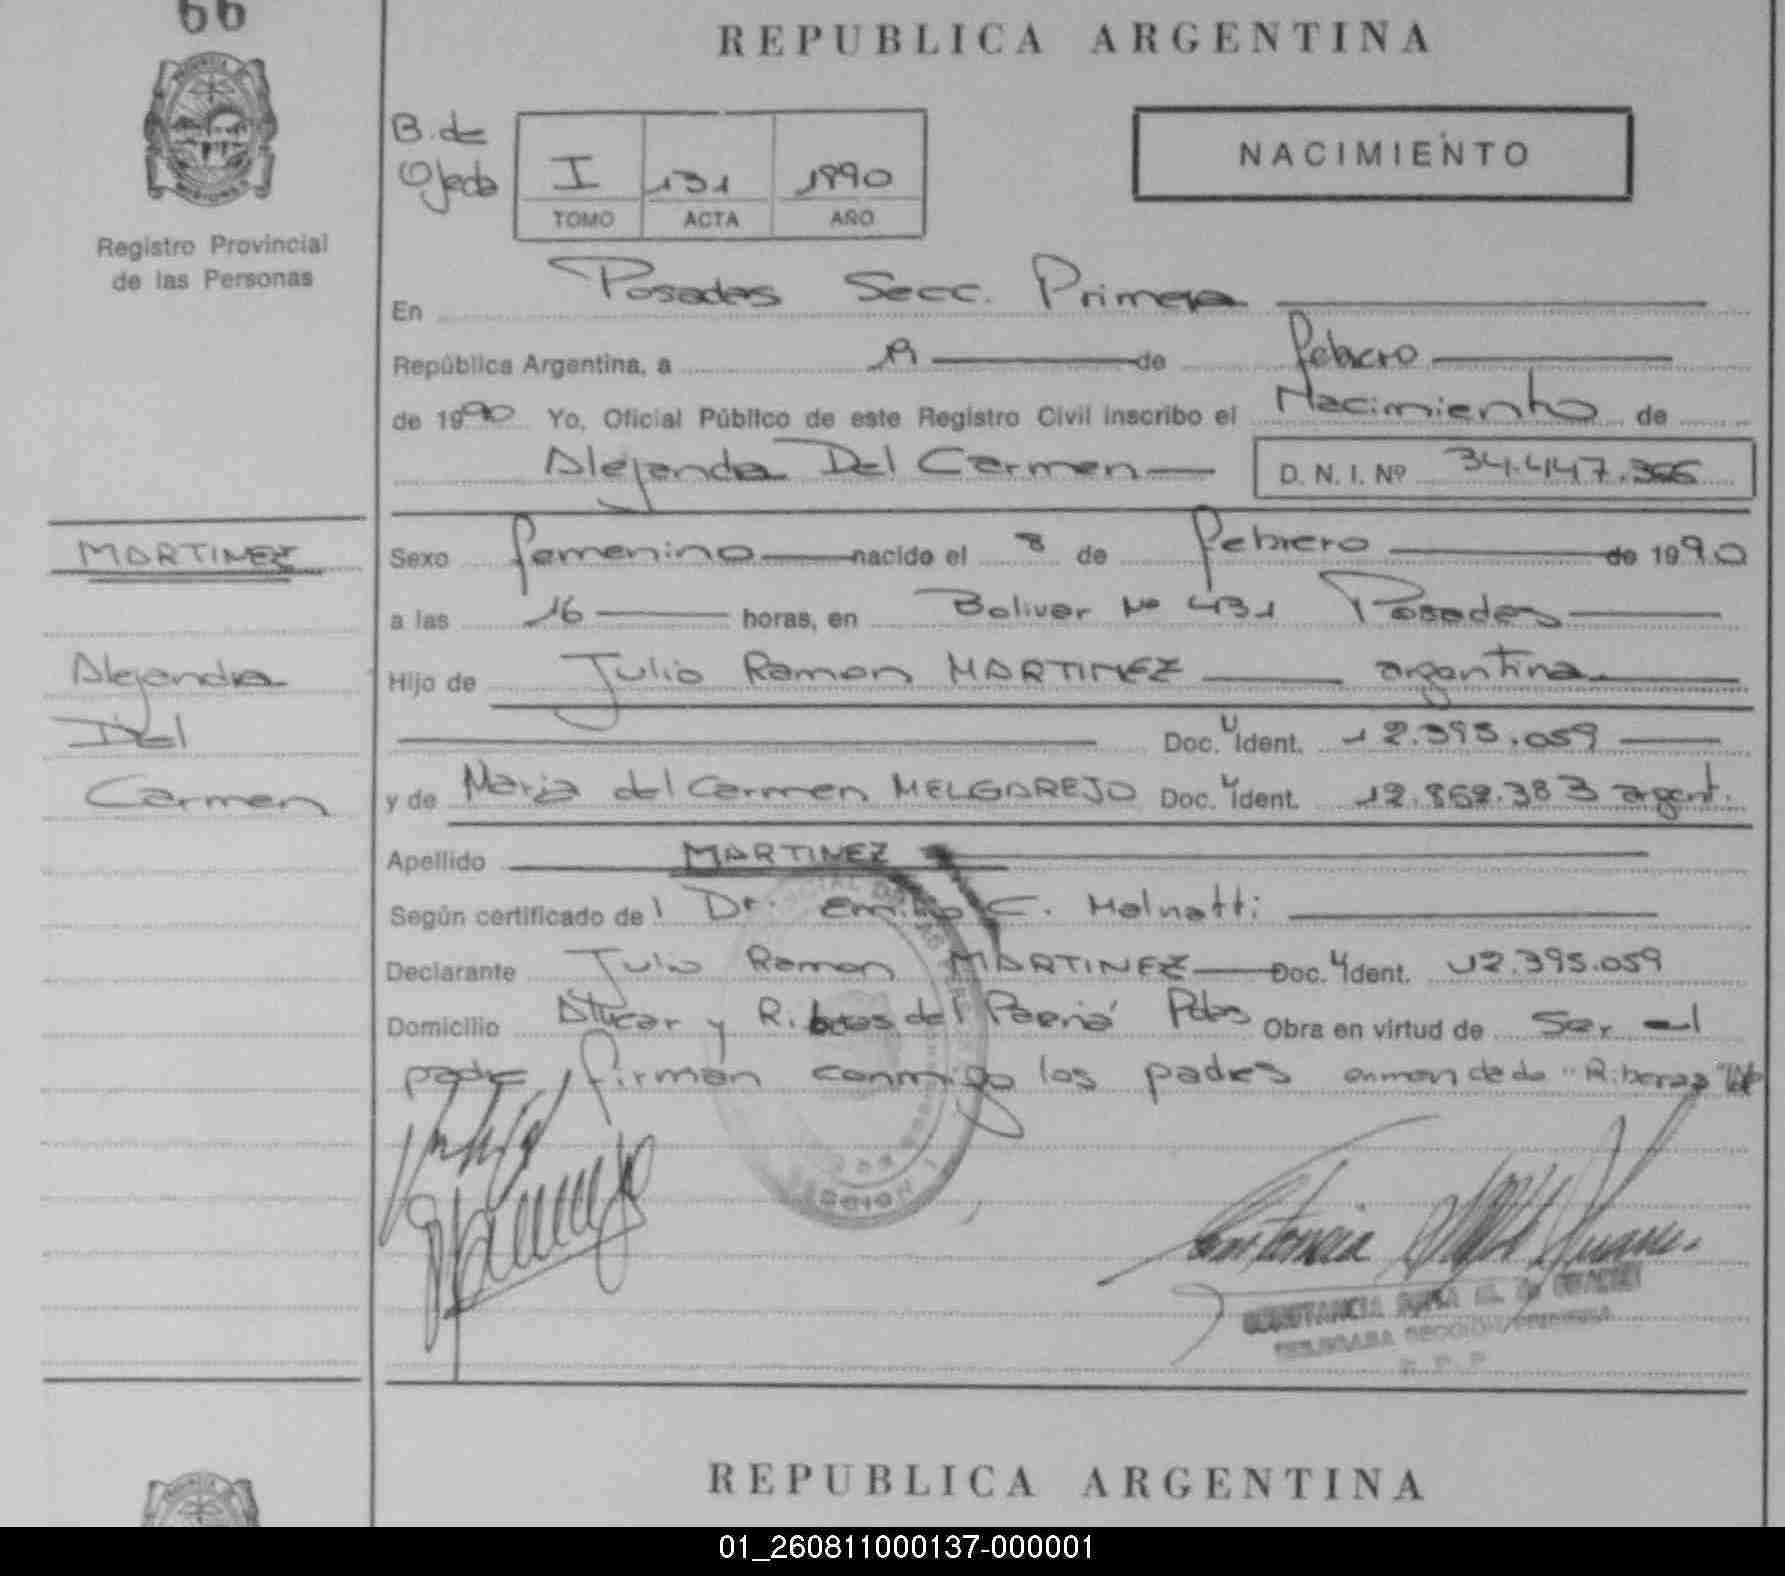 66
REPUBLICA ARGENTINA
B. de
Ojeda
I 131 1990
TOMO ACTA AÑO
NACIMIENTO
Registro Provincial
de las Personas
En Posadas Secc. Primera
República Argentina, a de febrero
de 1990 Yo, Oficial Público de este Registro Civil inscribo el Nacimiento de
Alejandra Del Carmen D. N. I. Nº 34.447.366
MARTINEZ
Sexo femenino nacido el 8 de febrero de 1990
a las 16 horas, en Bolivar Nº 431 Posadas
Alejandra
Del
Carmen
Hijo de Julio Ramon MARTINEZ argentina
Doc. U Ident. 12.395.059
y de Maria del Carmen MELGAREJO Doc. U Ident. 12.852.383 argent.
Apellido MARTINEZ
Según certificado de l Dr. Emilio C. Malnatti
Declarante Julio Ramon MARTINEZ Doc. U Ident. 12.395.059
Domicilio y del Pdas Obra en virtud de Ser el
padre firman conmigo los padres enmendado "Riberas"
CONSTANCIA
SECCION PRIMERA
REPUBLICA ARGENTINA
01_260811000137-000001